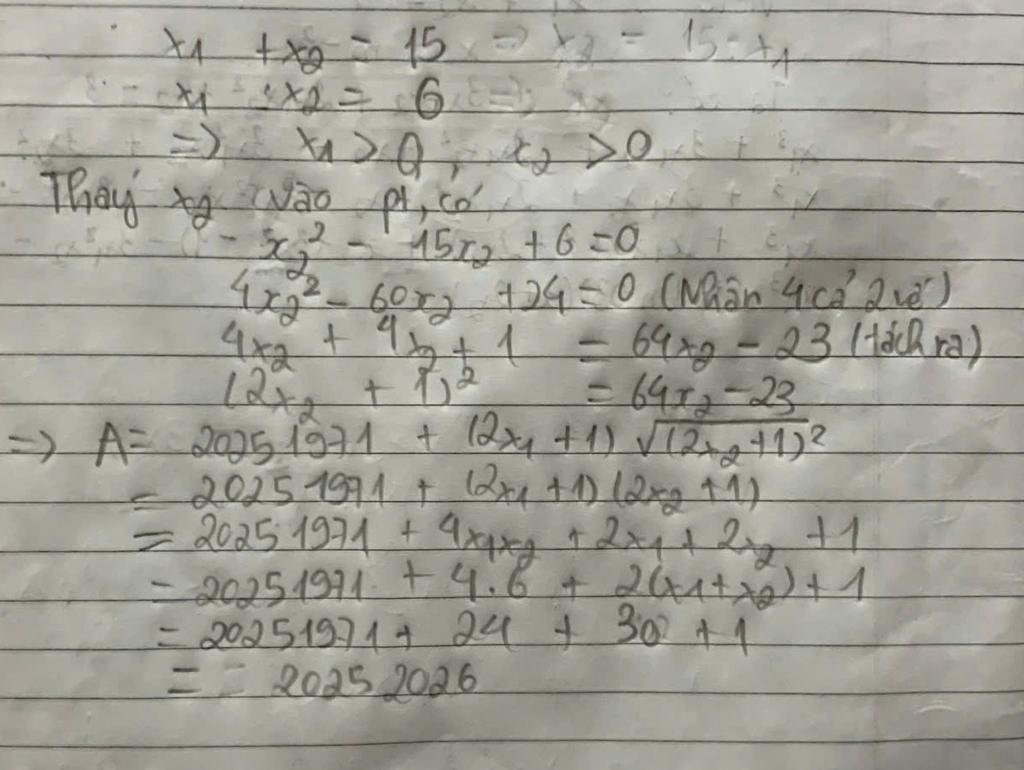 x₁ + x₂ = 15 => x₂ = 15 - x₁
x₁ . x₂ = 6
=> x₁ > 0, x₂ > 0
Thay x₂ vào pt, có
x₂² - 15x₂ + 6 = 0
4x₂² - 60x₂ + 24 = 0 (Nhân 4 cả 2 vế)
4x₂ + 4x₂ + 1 = 64x₂ - 23 (tách ra)
(2x₂ + 1)² = 64x₂ - 23
=> A = 20251971 + (2x₁ + 1) √(2x₂+1)²
= 20251971 + (2x₁+1)(2x₂+1)
= 20251971 + 4x₁x₂ + 2x₁ + 2x₂ + 1
= 20251971 + 4.6 + 2(x₁+x₂) + 1
= 20251971 + 24 + 30 + 1
= = 20252026